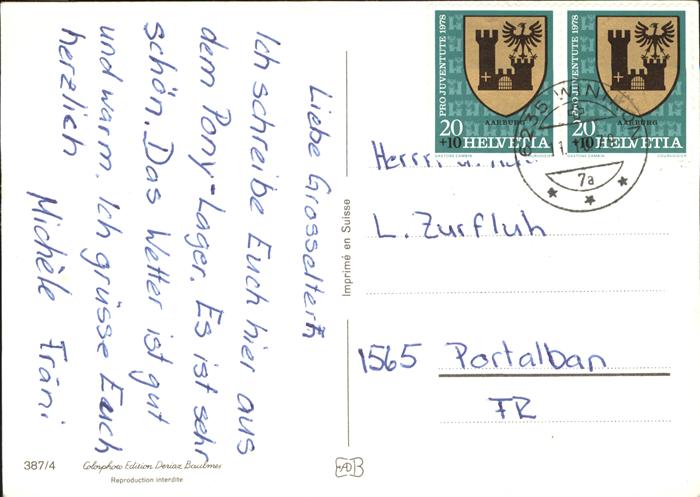 Liebe Grosseltern
Ich schreibe Euch hier aus
dem Pony-Lager. Es ist sehr
schön. Das Wetter ist gut
und warm. Ich grüsse Euch
herzlich
Michèle Fräni
387/4
Colorphoto Edition Deriaz Baulmes
Reproduction interdite
Imprimé en Suisse
PRO JUVENTUTE 1978
AARBURG
20
+10 HELVETIA
PRO JUVENTUTE 1978
AARBURG
20
+10 HELVETIA
6235 WINIKON
7a
Herrn
L. Zurfluh
1565 Portalban
FR